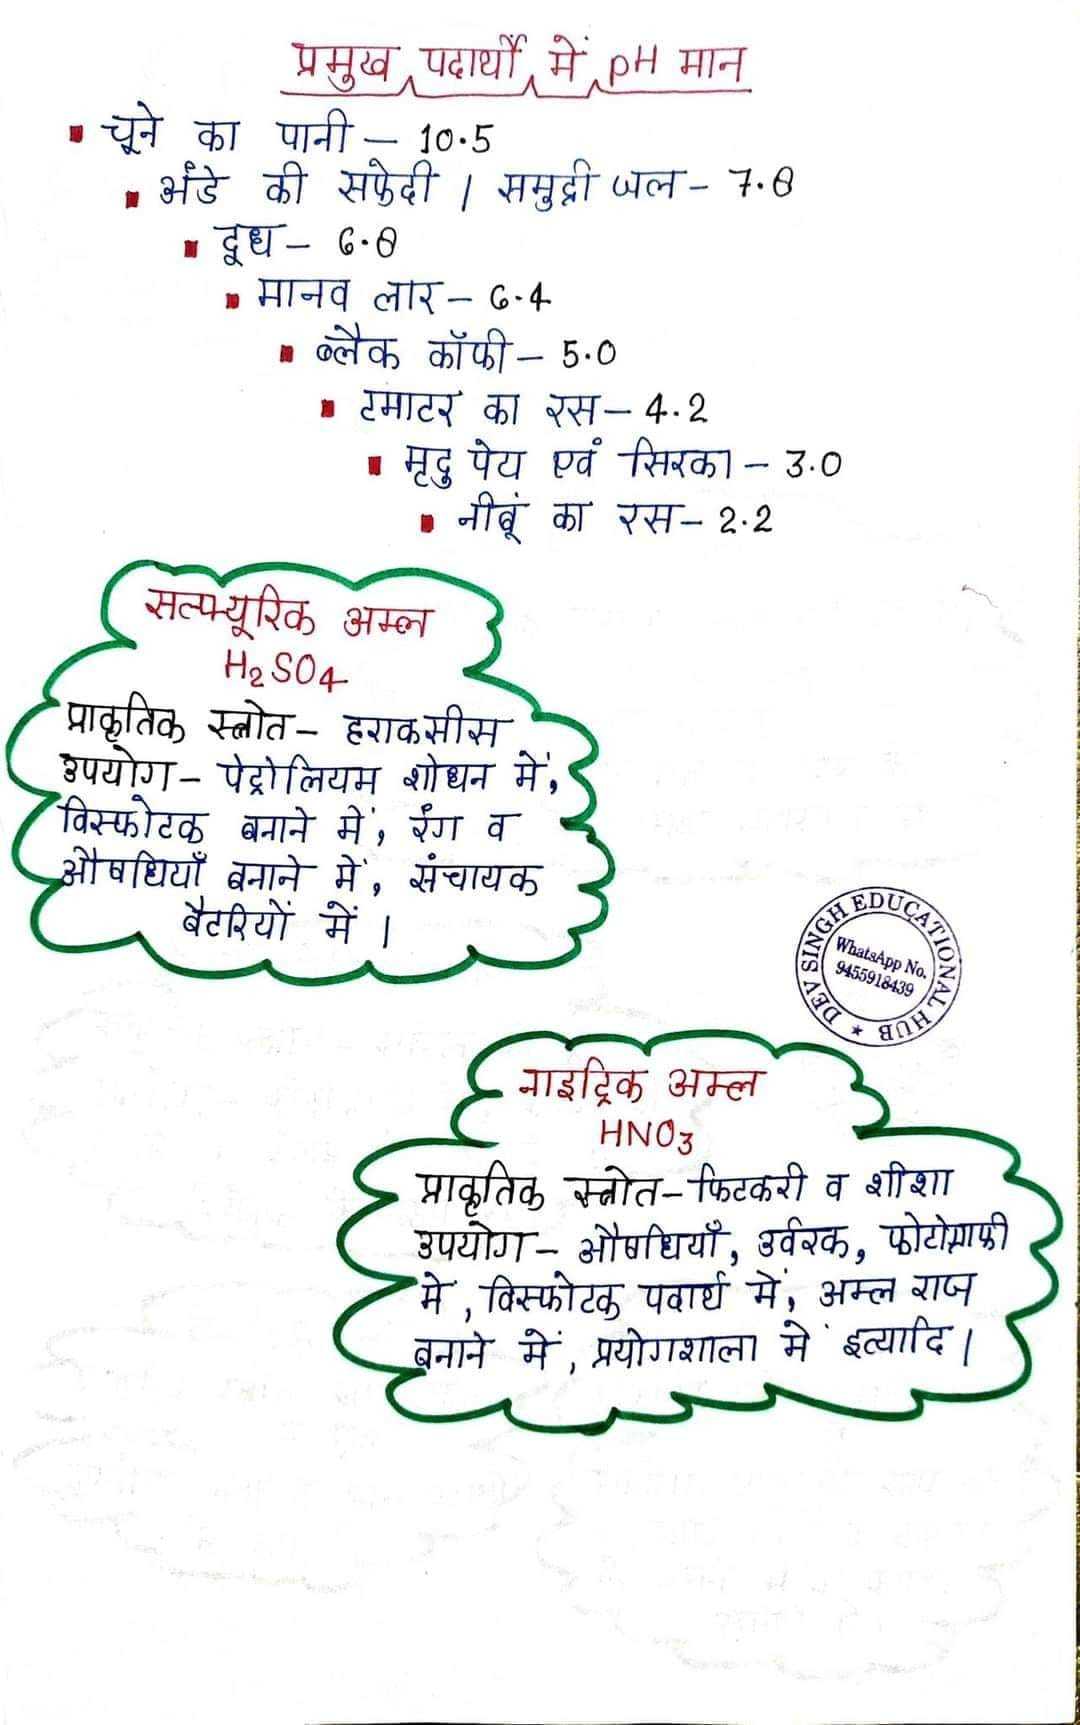 प्रमुख पदार्थों में pH मान
चूने का पानी – 10.5
अंडे की सफेदी / समुद्री जल – 7.8
दूध – 6.8
मानव लार – 6.4
ब्लैक कॉफी – 5.0
टमाटर का रस – 4.2
मृदु पेय एवं सिरका – 3.0
नीबूं का रस – 2.2
सल्फ्यूरिक अम्ल
H₂SO4
प्राकृतिक स्त्रोत – हराकसीस
उपयोग – पेट्रोलियम शोधन में,
विस्फोटक बनाने में, रंग व
औषधियाँ बनाने में, संचायक
बैटरियों में ।
DEV SINGH EDUCATIONAL HUB
WhatsApp No.
9455918439
नाइट्रिक अम्ल
HNO3
प्राकृतिक स्त्रोत – फिटकरी व शीशा
उपयोग – औषधियाँ, उर्वरक, फोटोग्राफी
में, विस्फोटक पदार्थ में, अम्ल राज
बनाने में, प्रयोगशाला में इत्यादि ।